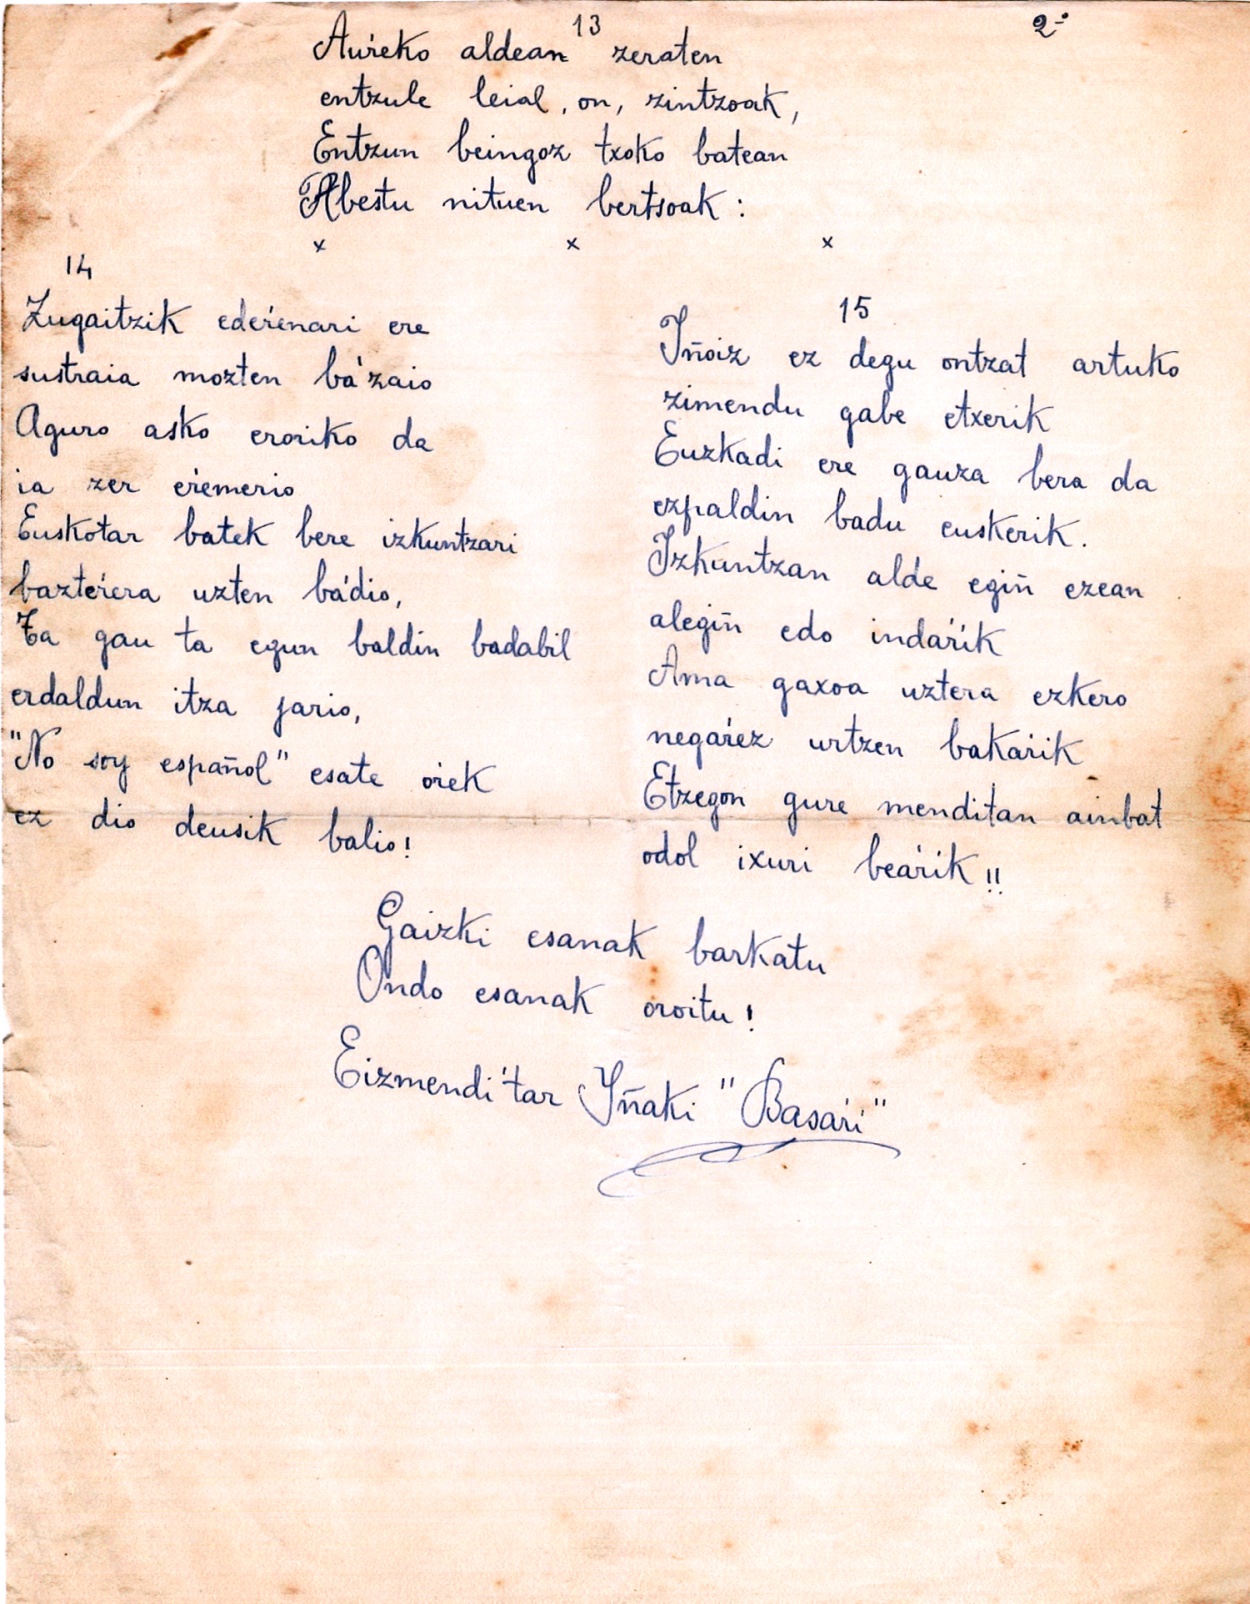 13
2º
Auŕeko aldean zeraten
entzule leial, on, zintzoak,
Entzun beingoz txoko batean
Abestu nituen bertsoak:
x x x
14
Zugaitzik edeŕenari ere
sustraia mozten ba'zaio
Aguro asko eroriko da
ia zer eŕemerio
Euskotar batek bere izkuntzari
bazteŕera uzten ba'dio,
Ta gau ta egun baldin badabil
erdaldun itza jario,
"No soy español" esate oŕek
ez dio deusik balio!
15
Iñoiz ez degu ontzat artuko
zimendu gabe etxerik
Euzkadi ere gauza bera da
ezpaldin badu euskerik.
Izkuntzan alde egiñ ezean
alegiñ edo indaŕik
Ama gaxoa uztera ezkero
negaŕez urtzen bakaŕik
Etzegon gure menditan ainbat
odol ixuri beaŕik!!
Gaizki esanak barkatu
Ondo esanak oroitu!
Eizmendi'tar Iñaki "Basaŕi"